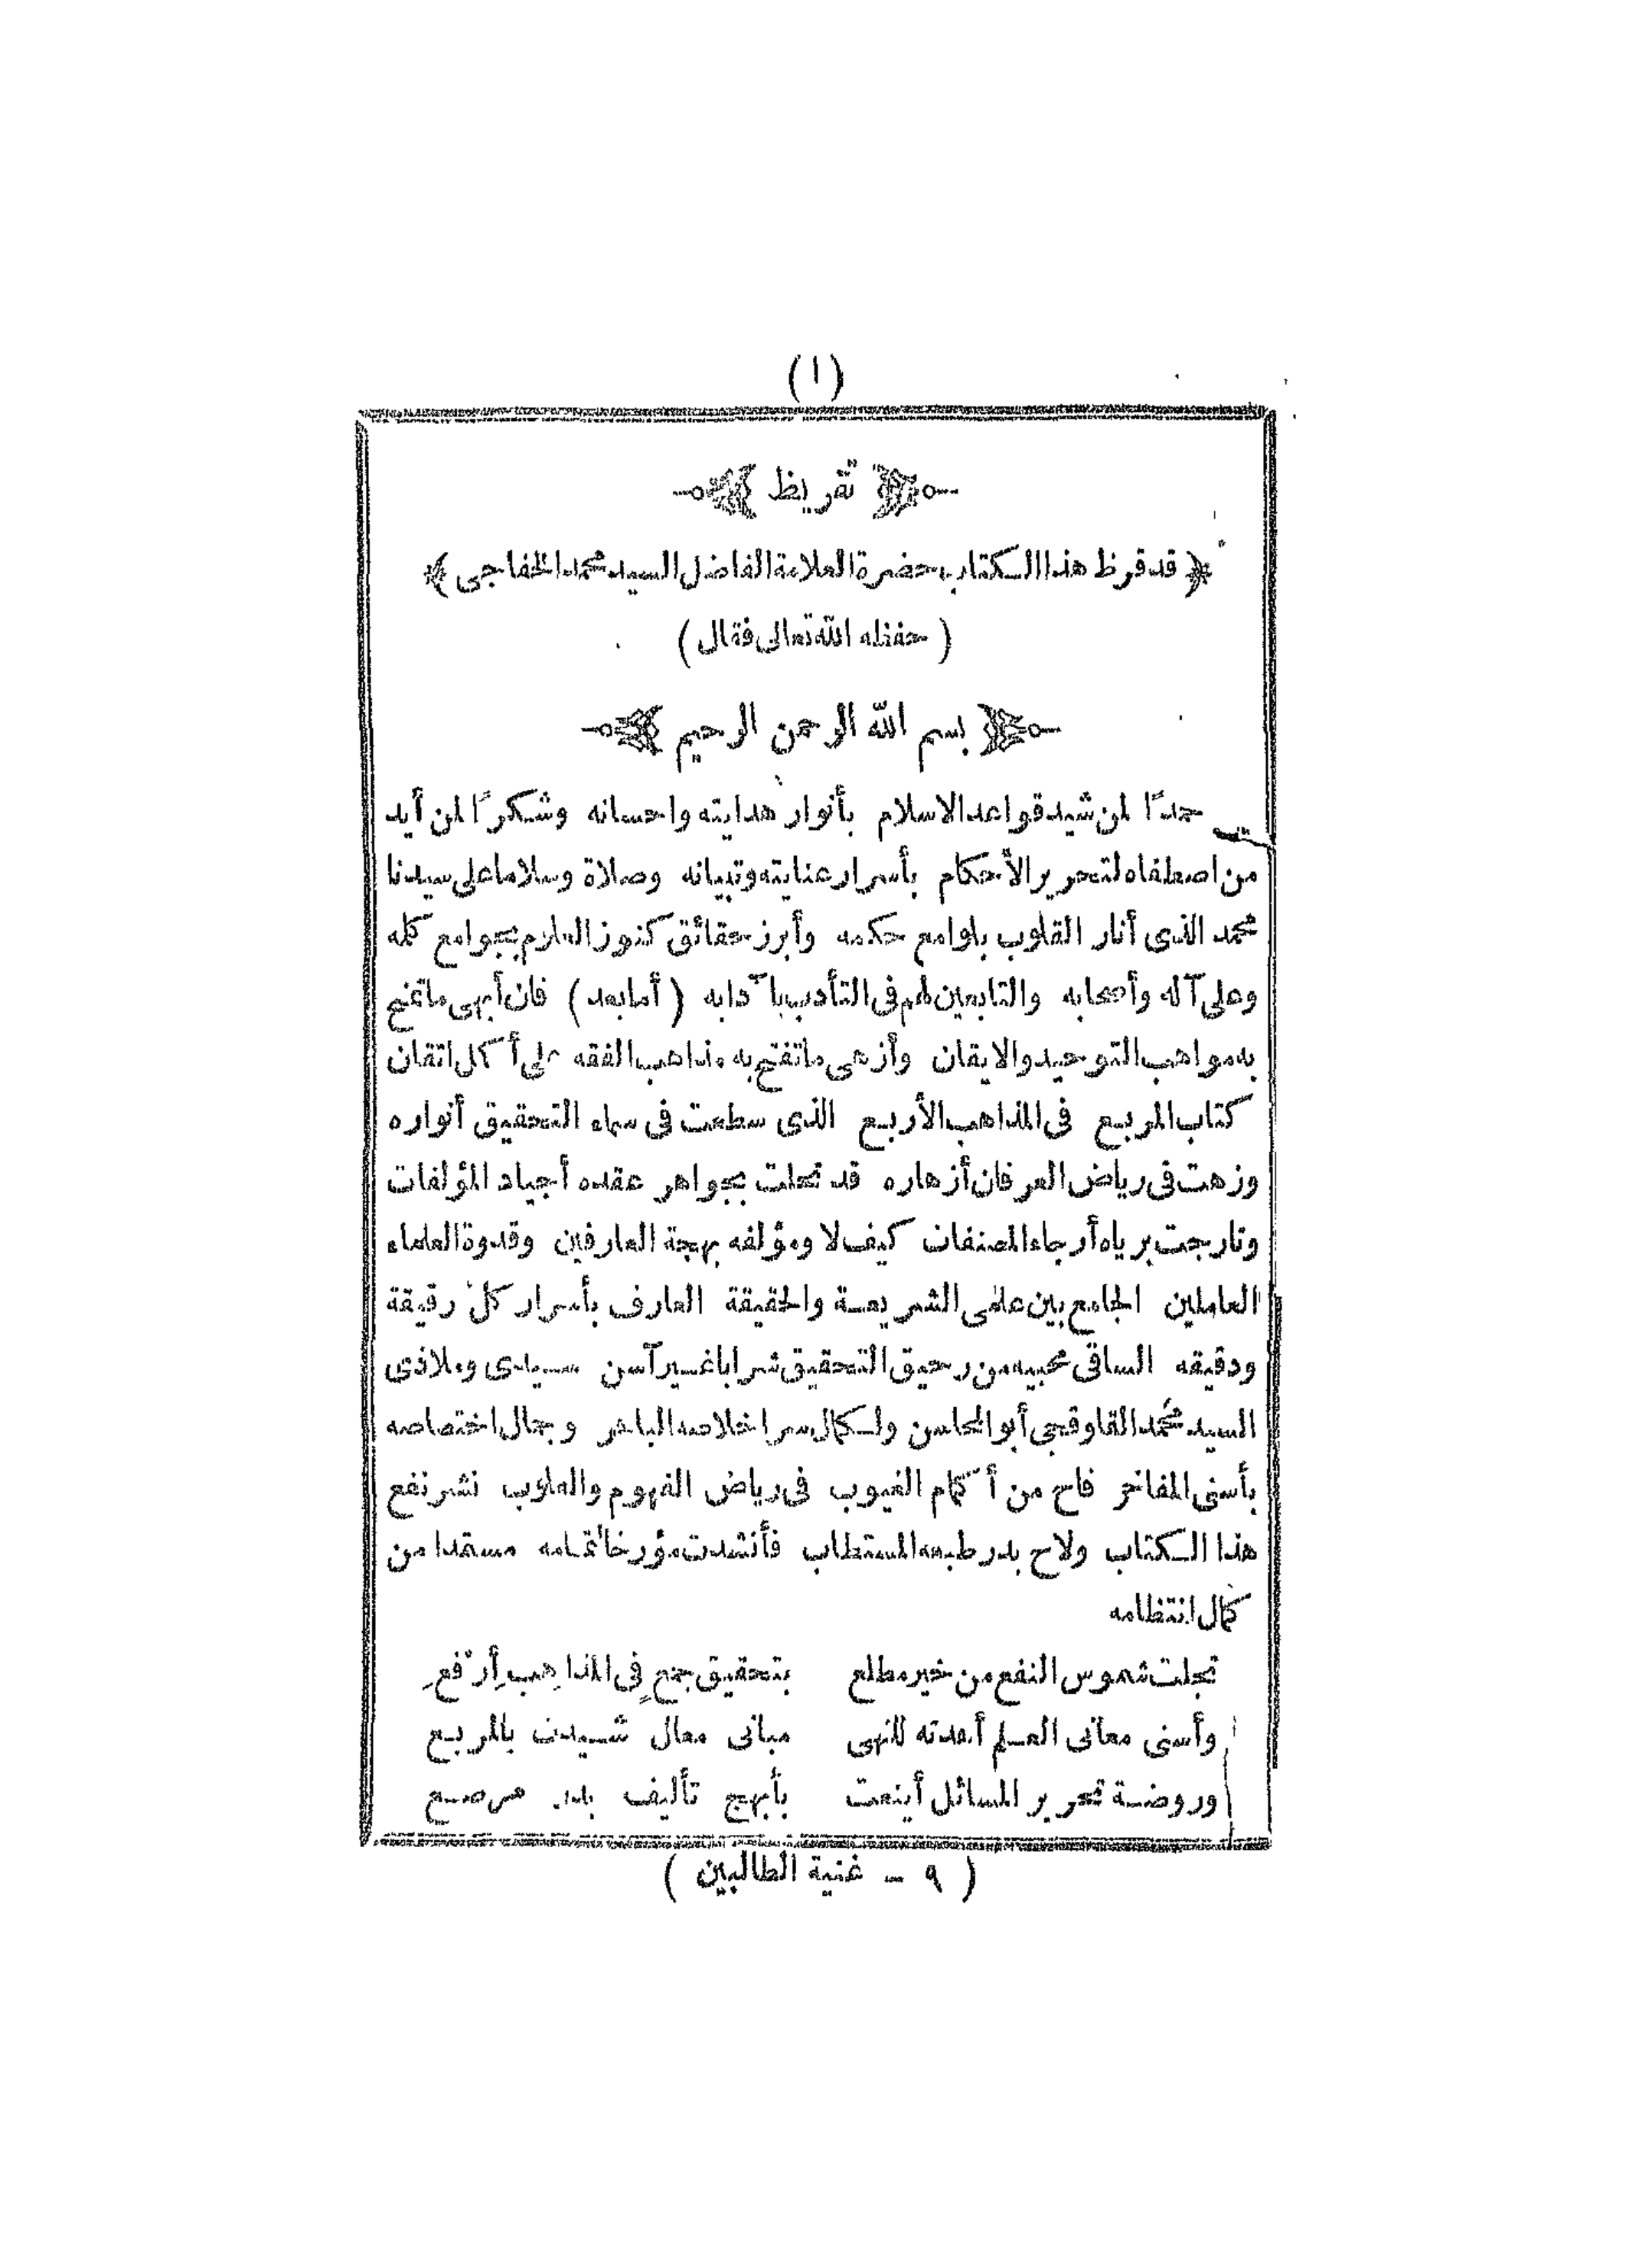 (١)
تقريظ
قد قرظ هذا الكتاب حضرة العلامة الفاضل السيد محمد الخفاجى
( حفظه الله تعالى فقال )
بسم الله الرحمن الرحيم
حمدًا لمن شيد قواعد الاسلام بأنوار هدايته واحسانه وشكرًا لمن أيد
من اصطفاه لتحرير الأحكام بأسرار عنايته وتبيانه وصلاة وسلاما على سيدنا
محمد الذى أنار القلوب بلوامع حكمه وأبرز حقائق كنوز العلوم بجوامع كلمه
وعلى آله وأصحابه والتابعين لهم فى التأدب بآدابه ( أما بعد ) فان أبهى ما تمنح
به مواهب التوحيد والايقان وأزهى ما تفتح به مذاهب الفقه على أكمل اتقان
كتاب المربع فى المذاهب الأربع الذى سطعت فى سماء التحقيق أنواره
وزهت فى رياض العرفان أزهاره قد تحلت بجواهر عقده أجياد المؤلفات
وتارجت برياه أرجاء المصنفات كيف لا ومؤلفه بهجة العارفين وقدوة العلماء
العاملين الجامع بين علمى الشريعة والحقيقة العارف بأسرار كل رقيقة
ودقيقه الساقى محبيه من رحيق التحقيق شرابا غير آسن سيدى وملاذى
السيد محمد القاوقجى أبو المحاسن ولكمال سر اخلاصه الباهر وجمال اختصاصه
بأسنى المفاخر فاح من أكمام الغيوب فى رياض الفهوم والقلوب نشر نفع
هذا الكتاب ولاح بدر طبعه المستطاب فأنشدت مؤرخا تمامه مستمدا من
كمال انتظامه
تجلت شموس النفع من خير مطلع بتحقيق جمعٍ فِى المذاهِبِ أرْفعِ
وأسنى معانى العلم أبدته للنهى مبانى معال شيدت بالمربع
وروضة تحرير المسائل أينعت بأبهج تأليف بدر مرصع
( ٩ - غنية الطالبين )